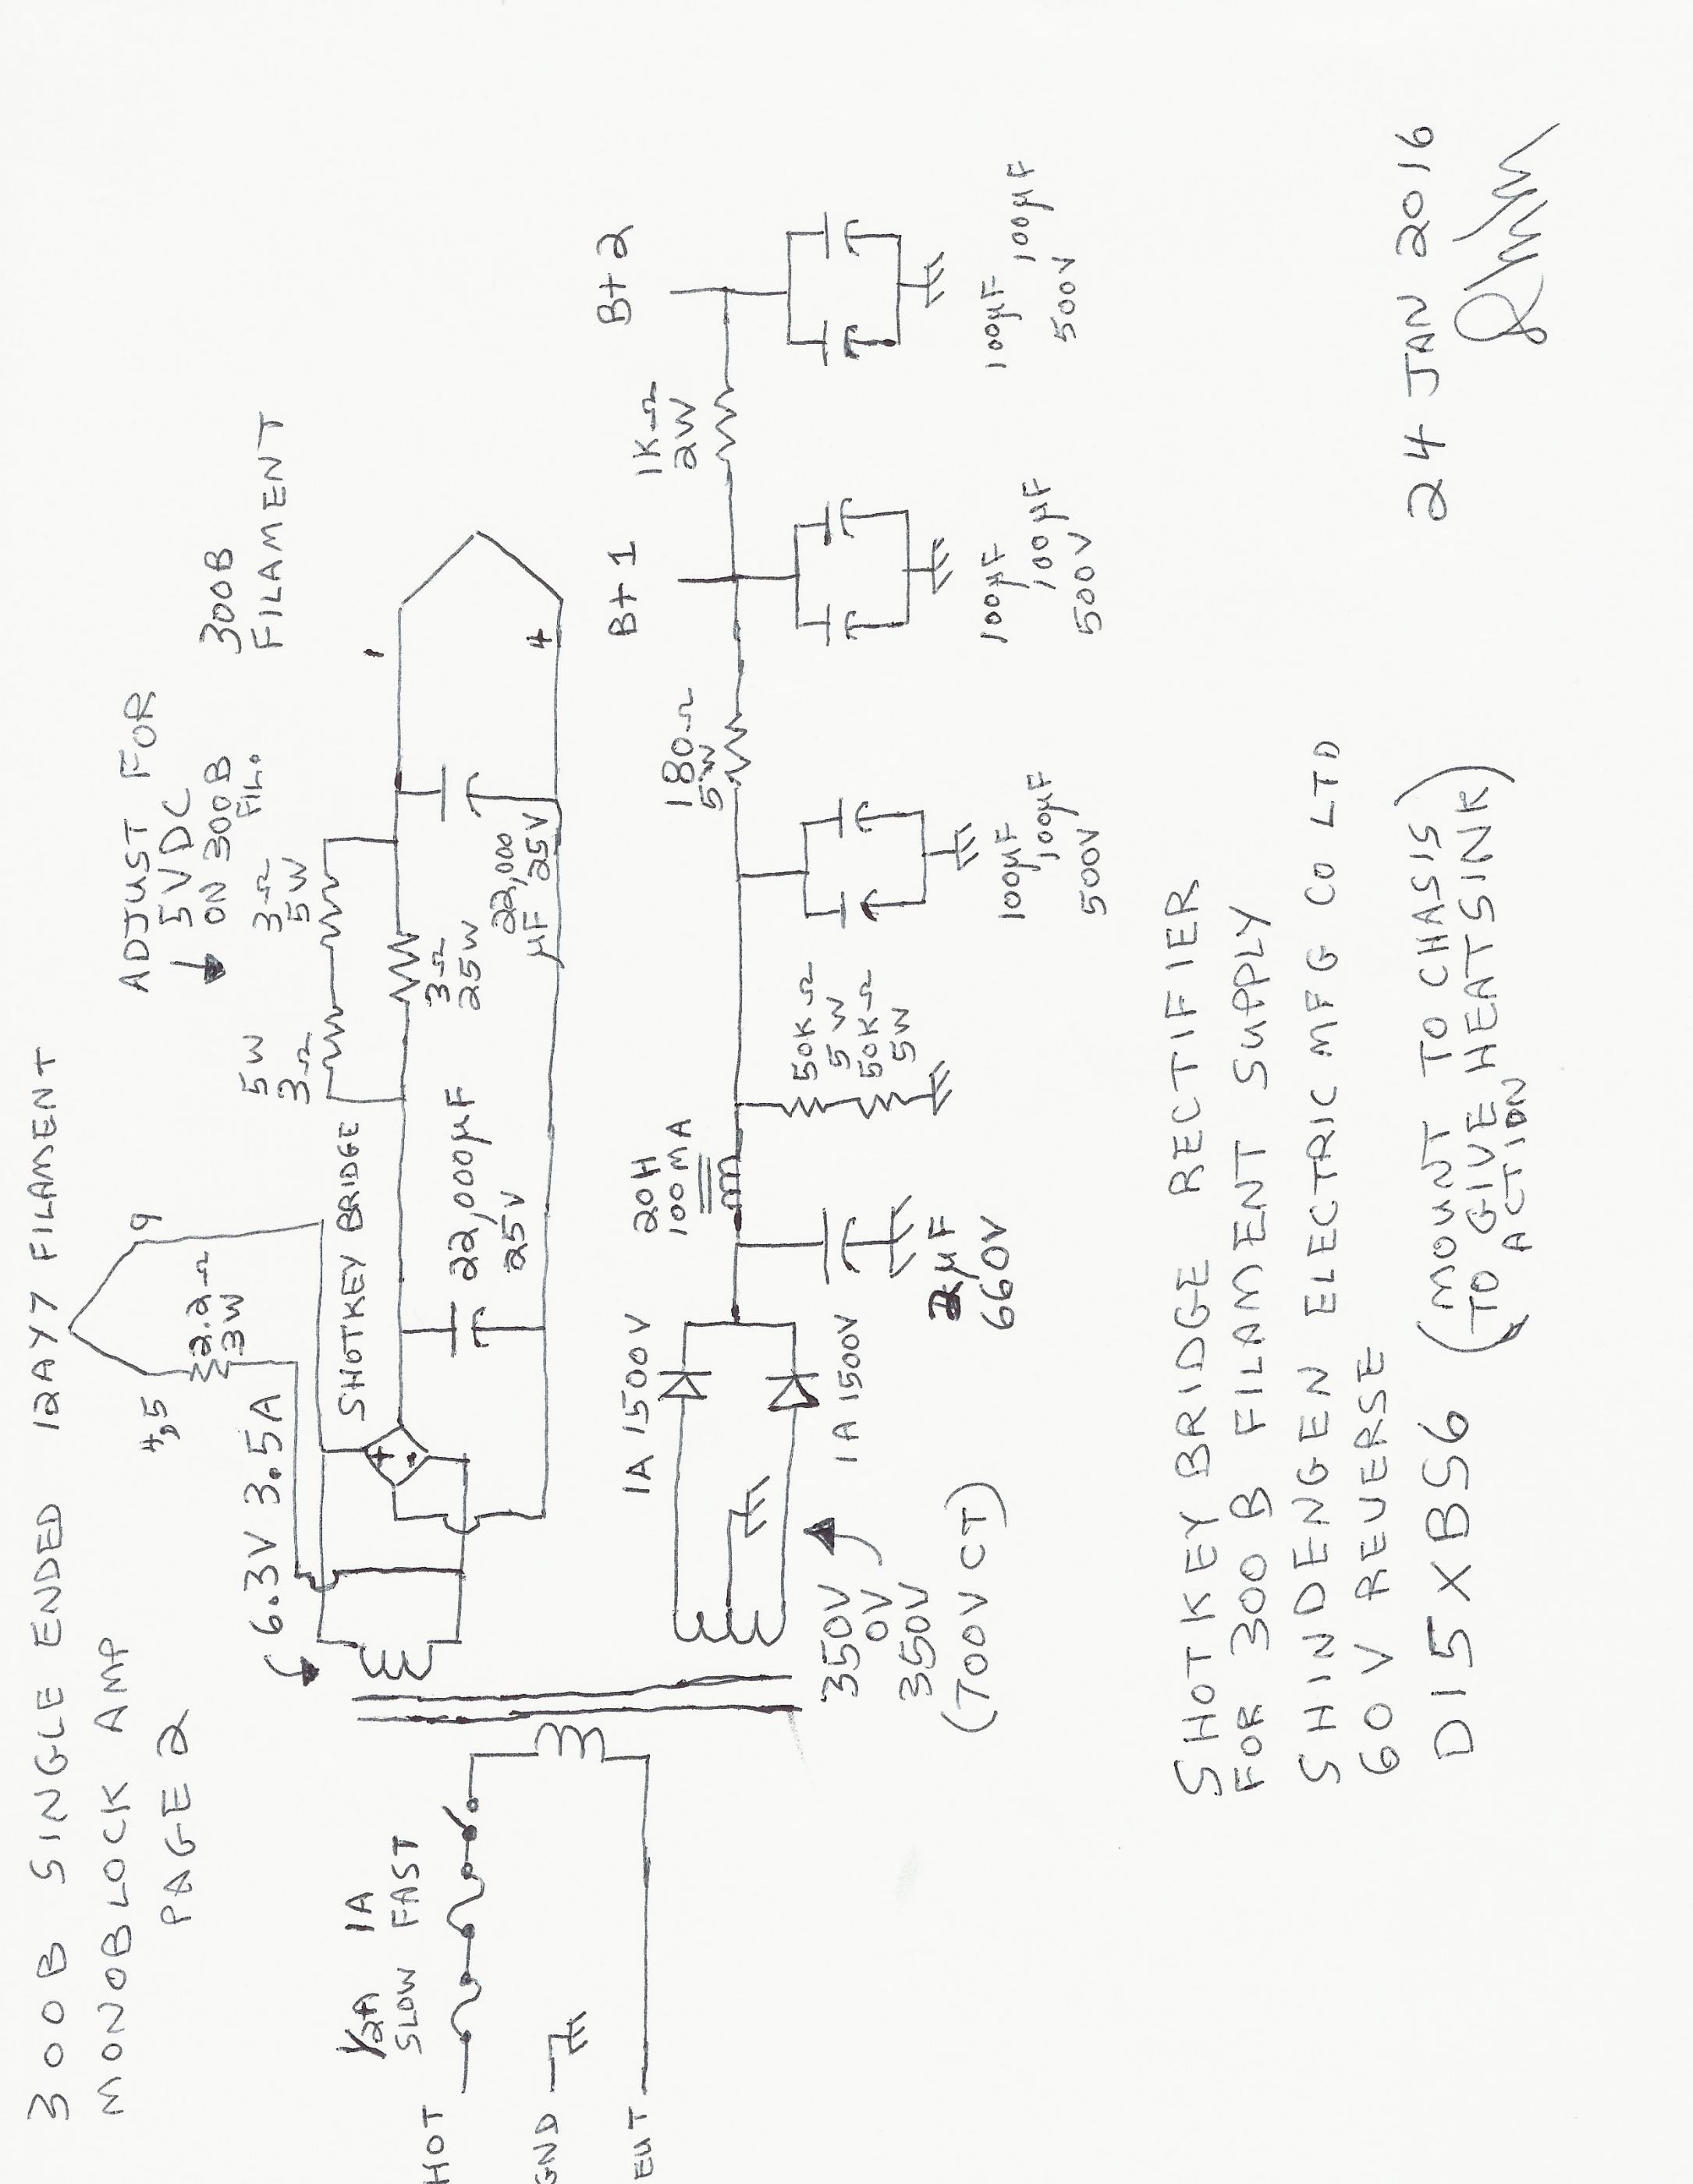 300B SINGLE ENDED
MONOBLOCK AMP
PAGE 2
12AY7 FILAMENT
4,5
9
2.2Ω
3W
6.3V 3.5A
SHOTKEY BRIDGE
+
-
22,000µF
25V
5W
3Ω
3Ω
5W
ADJUST FOR
5VDC
ON 300B
FIL.
3Ω
25W
22,000
µF 25V
300B
FILAMENT
-
+
1/2A 1A
SLOW FAST
HOT
GND
EUT
350V
0V
350V
(700VCT)
1A 1500V
1A 1500V
2µF
660V
20H
100MA
50KΩ
5W
50KΩ
5W
100µF
100µF
500V
180Ω
5W
B+1
100µF
100µF
500V
1KΩ
2W
B+2
100µF 100µF
500V
SHOTKEY BRIDGE RECTIFIER
FOR 300B FILAMENT SUPPLY
SHINDENGEN ELECTRIC MFG CO LTD
60V REVERSE
D15XBS6 (MOUNT TO CHASIS)
(TO GIVE HEATSINK)
ACTION
24 JAN 2016